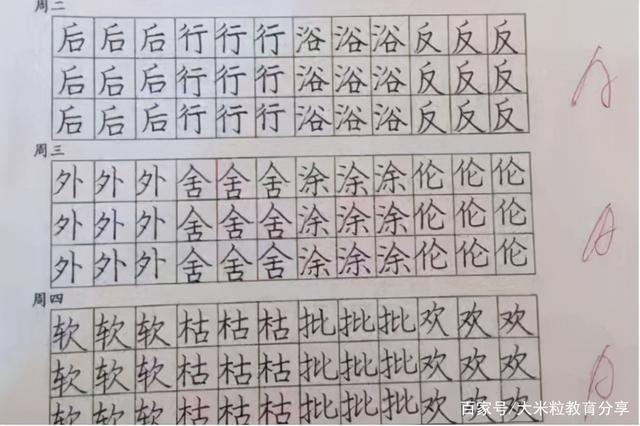 周二
后后后行行行浴浴浴反反反
后后后行行行浴浴浴反反反
后后后行行行浴浴浴反反反
A
周三
外外外舍舍舍涂涂涂伦伦伦
外外外舍舍舍涂涂涂伦伦伦
外外外舍舍舍涂涂涂伦伦伦
A
周四
软软软枯枯枯批批批欢欢欢
软软软枯枯枯批批批欢欢欢
软软软枯枯枯批批批欢欢欢
A
百家号/大米粒教育分享